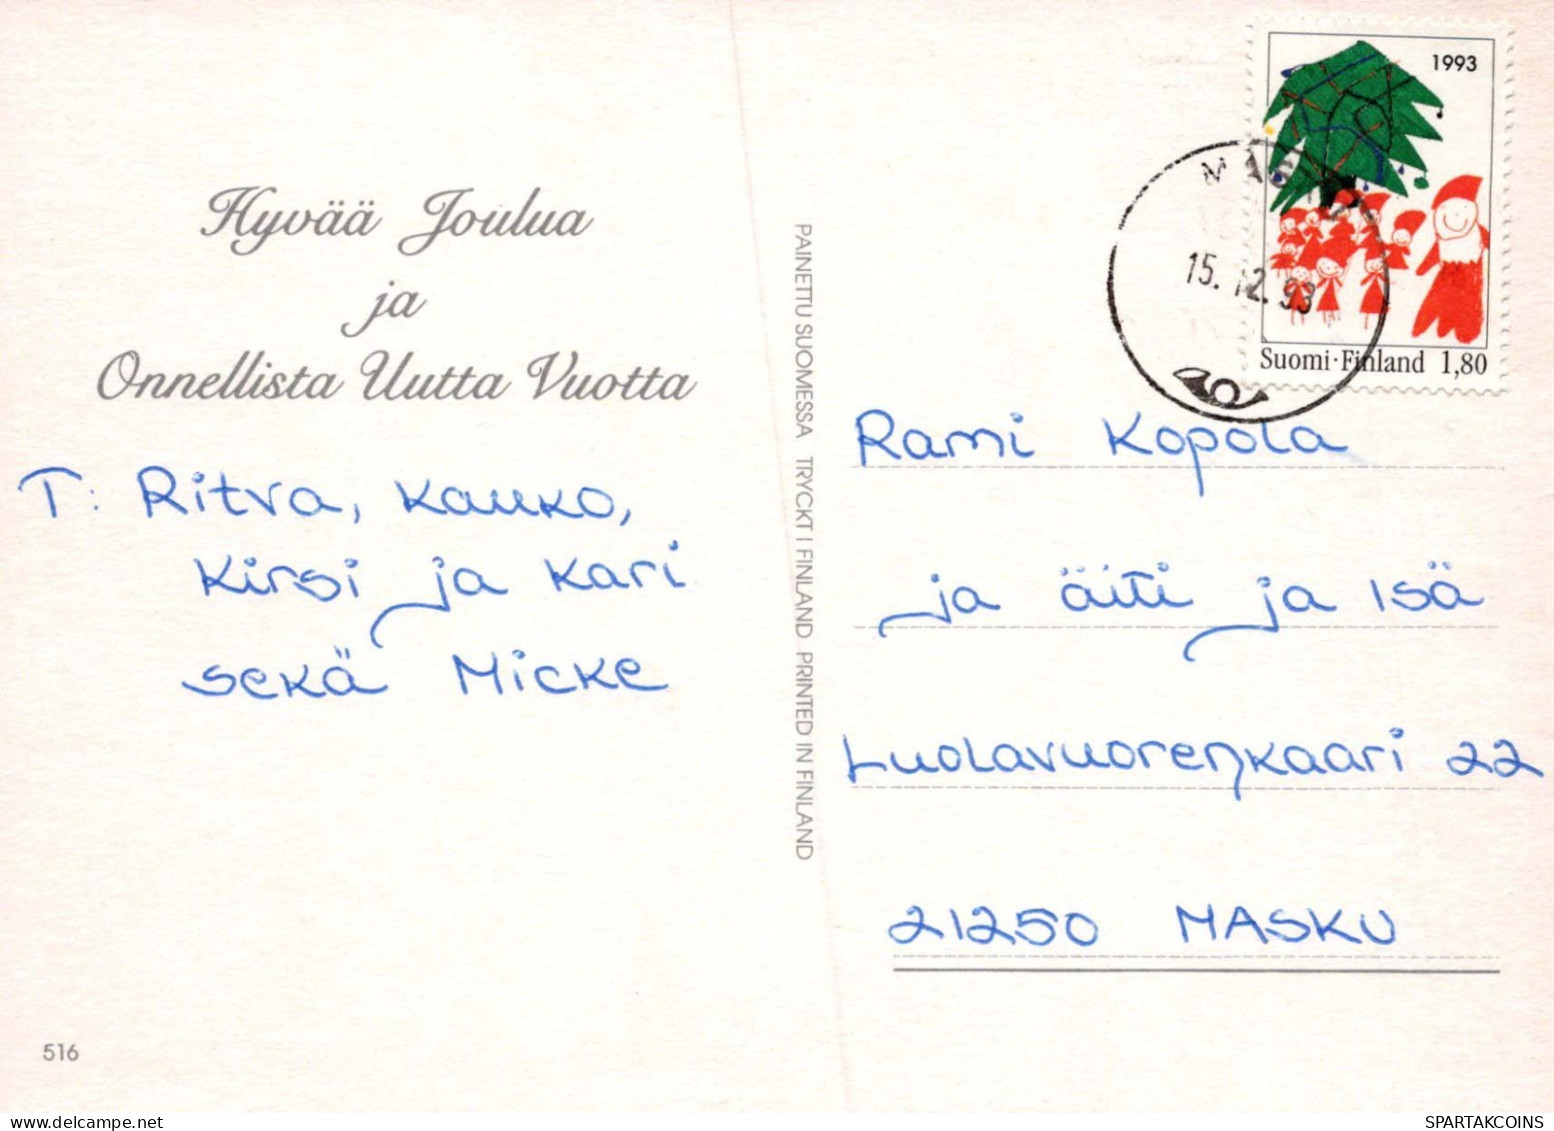 Hyvää Joulua
ja
Onnellista Uutta Vuotta
T: Ritva, Kauko,
Kirsi ja Kari
sekä Micke
516
PAINETTU SUOMESSA TRYCKT I FINLAND PRINTED IN FINLAND
1993
15.12.93
Suomi·Finland 1,80
Rami Kopola
ja äiti ja Isä
Luolavuorenkaari 22
21250 MASKU
SPARTAKCOINS